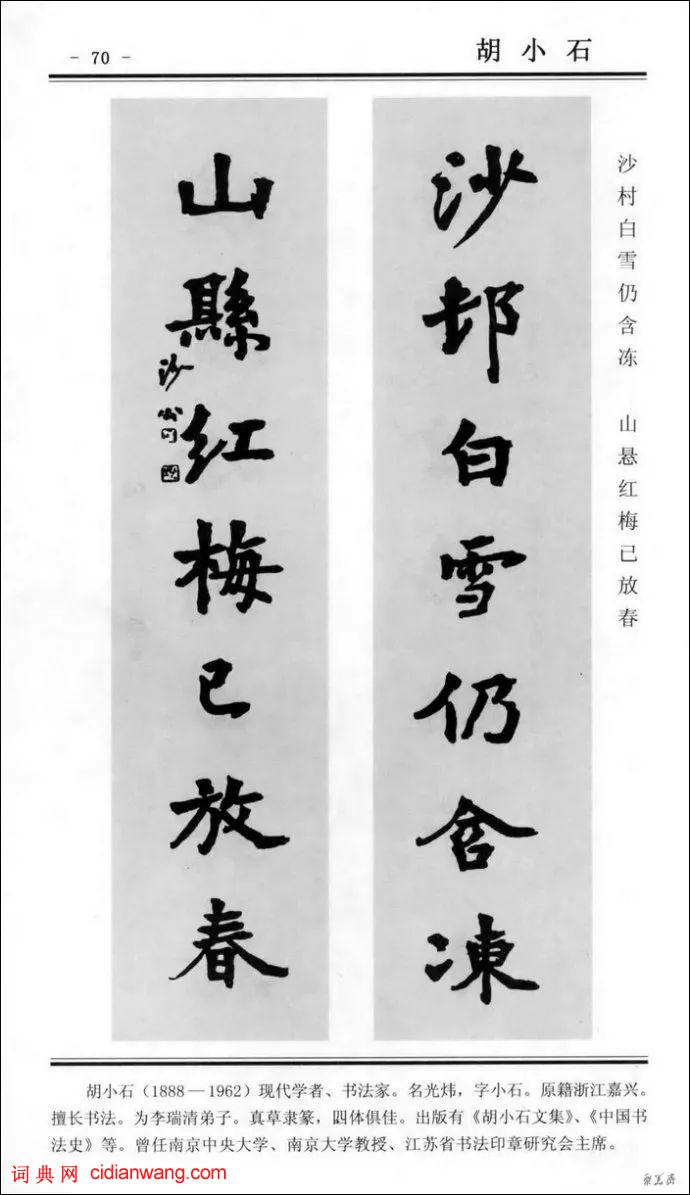 - 70 -
胡小石
沙邨白雪仍含凍
山縣红梅已放春
沙公
沙村白雪仍含冻 山悬红梅已放春
胡小石（1888—1962）现代学者、书法家。名光炜，字小石。原籍浙江嘉兴。
擅长书法。为李瑞清弟子。真草隶篆，四体俱佳。出版有《胡小石文集》、《中国书
法史》等。曾任南京中央大学、南京大学教授、江苏省书法印章研究会主席。
词典网 cidianwang.com